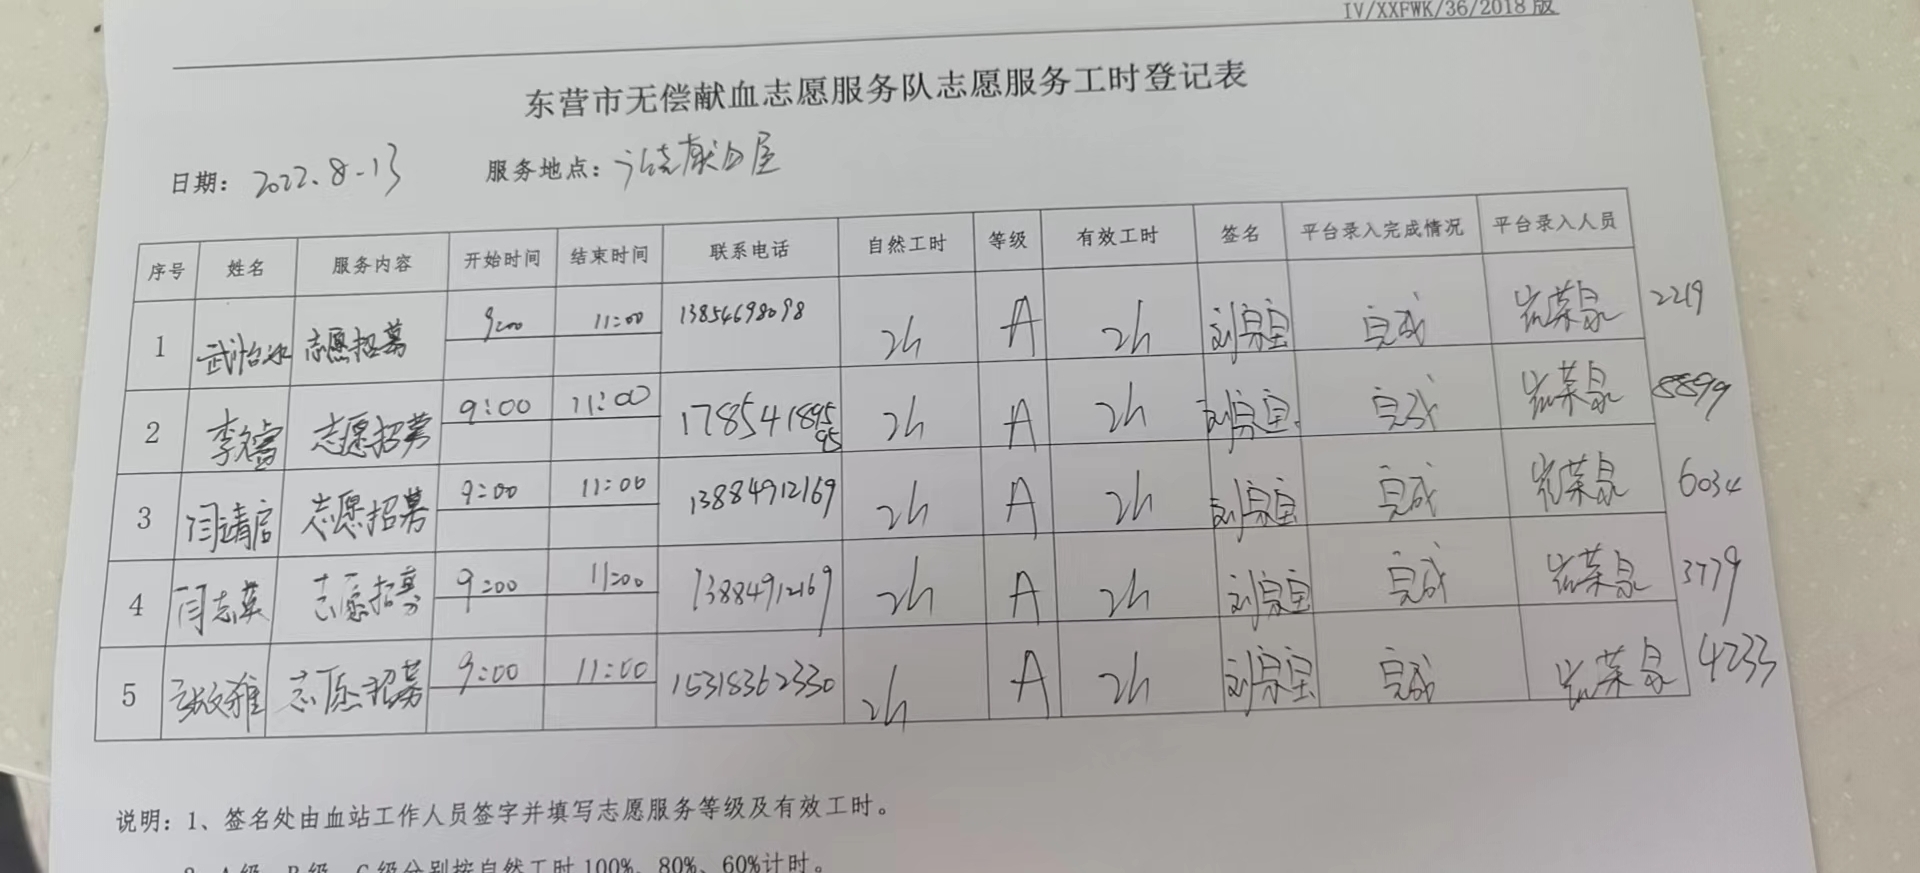 IV/XXFWK/36/2018 版
东营市无偿献血志愿服务队志愿服务工时登记表
日期: 2022.8.13 服务地点: 广饶献血屋
序号 姓名 服务内容 开始时间 结束时间 联系电话 自然工时 等级 有效工时 签名 平台录入完成情况 平台录入人员
1 武怡冰 志愿招募 9:00 11:00 13854698098 2h A 2h 完成 2219
2 志愿招募 9:00 11:00 2h A 2h 完成 8899
3 闫靖启 志愿招募 9:00 11:00 13884912169 2h A 2h 完成 6034
4 闫志英 志愿招募 9:00 11:00 13884912169 2h A 2h 完成 3779
5 张文雅 志愿招募 9:00 11:00 15318362330 2h A 2h 完成 4233
说明: 1、签名处由血站工作人员签字并填写志愿服务等级及有效工时。
2、A级、B级、C级分别按自然工时100%、80%、60%计时。